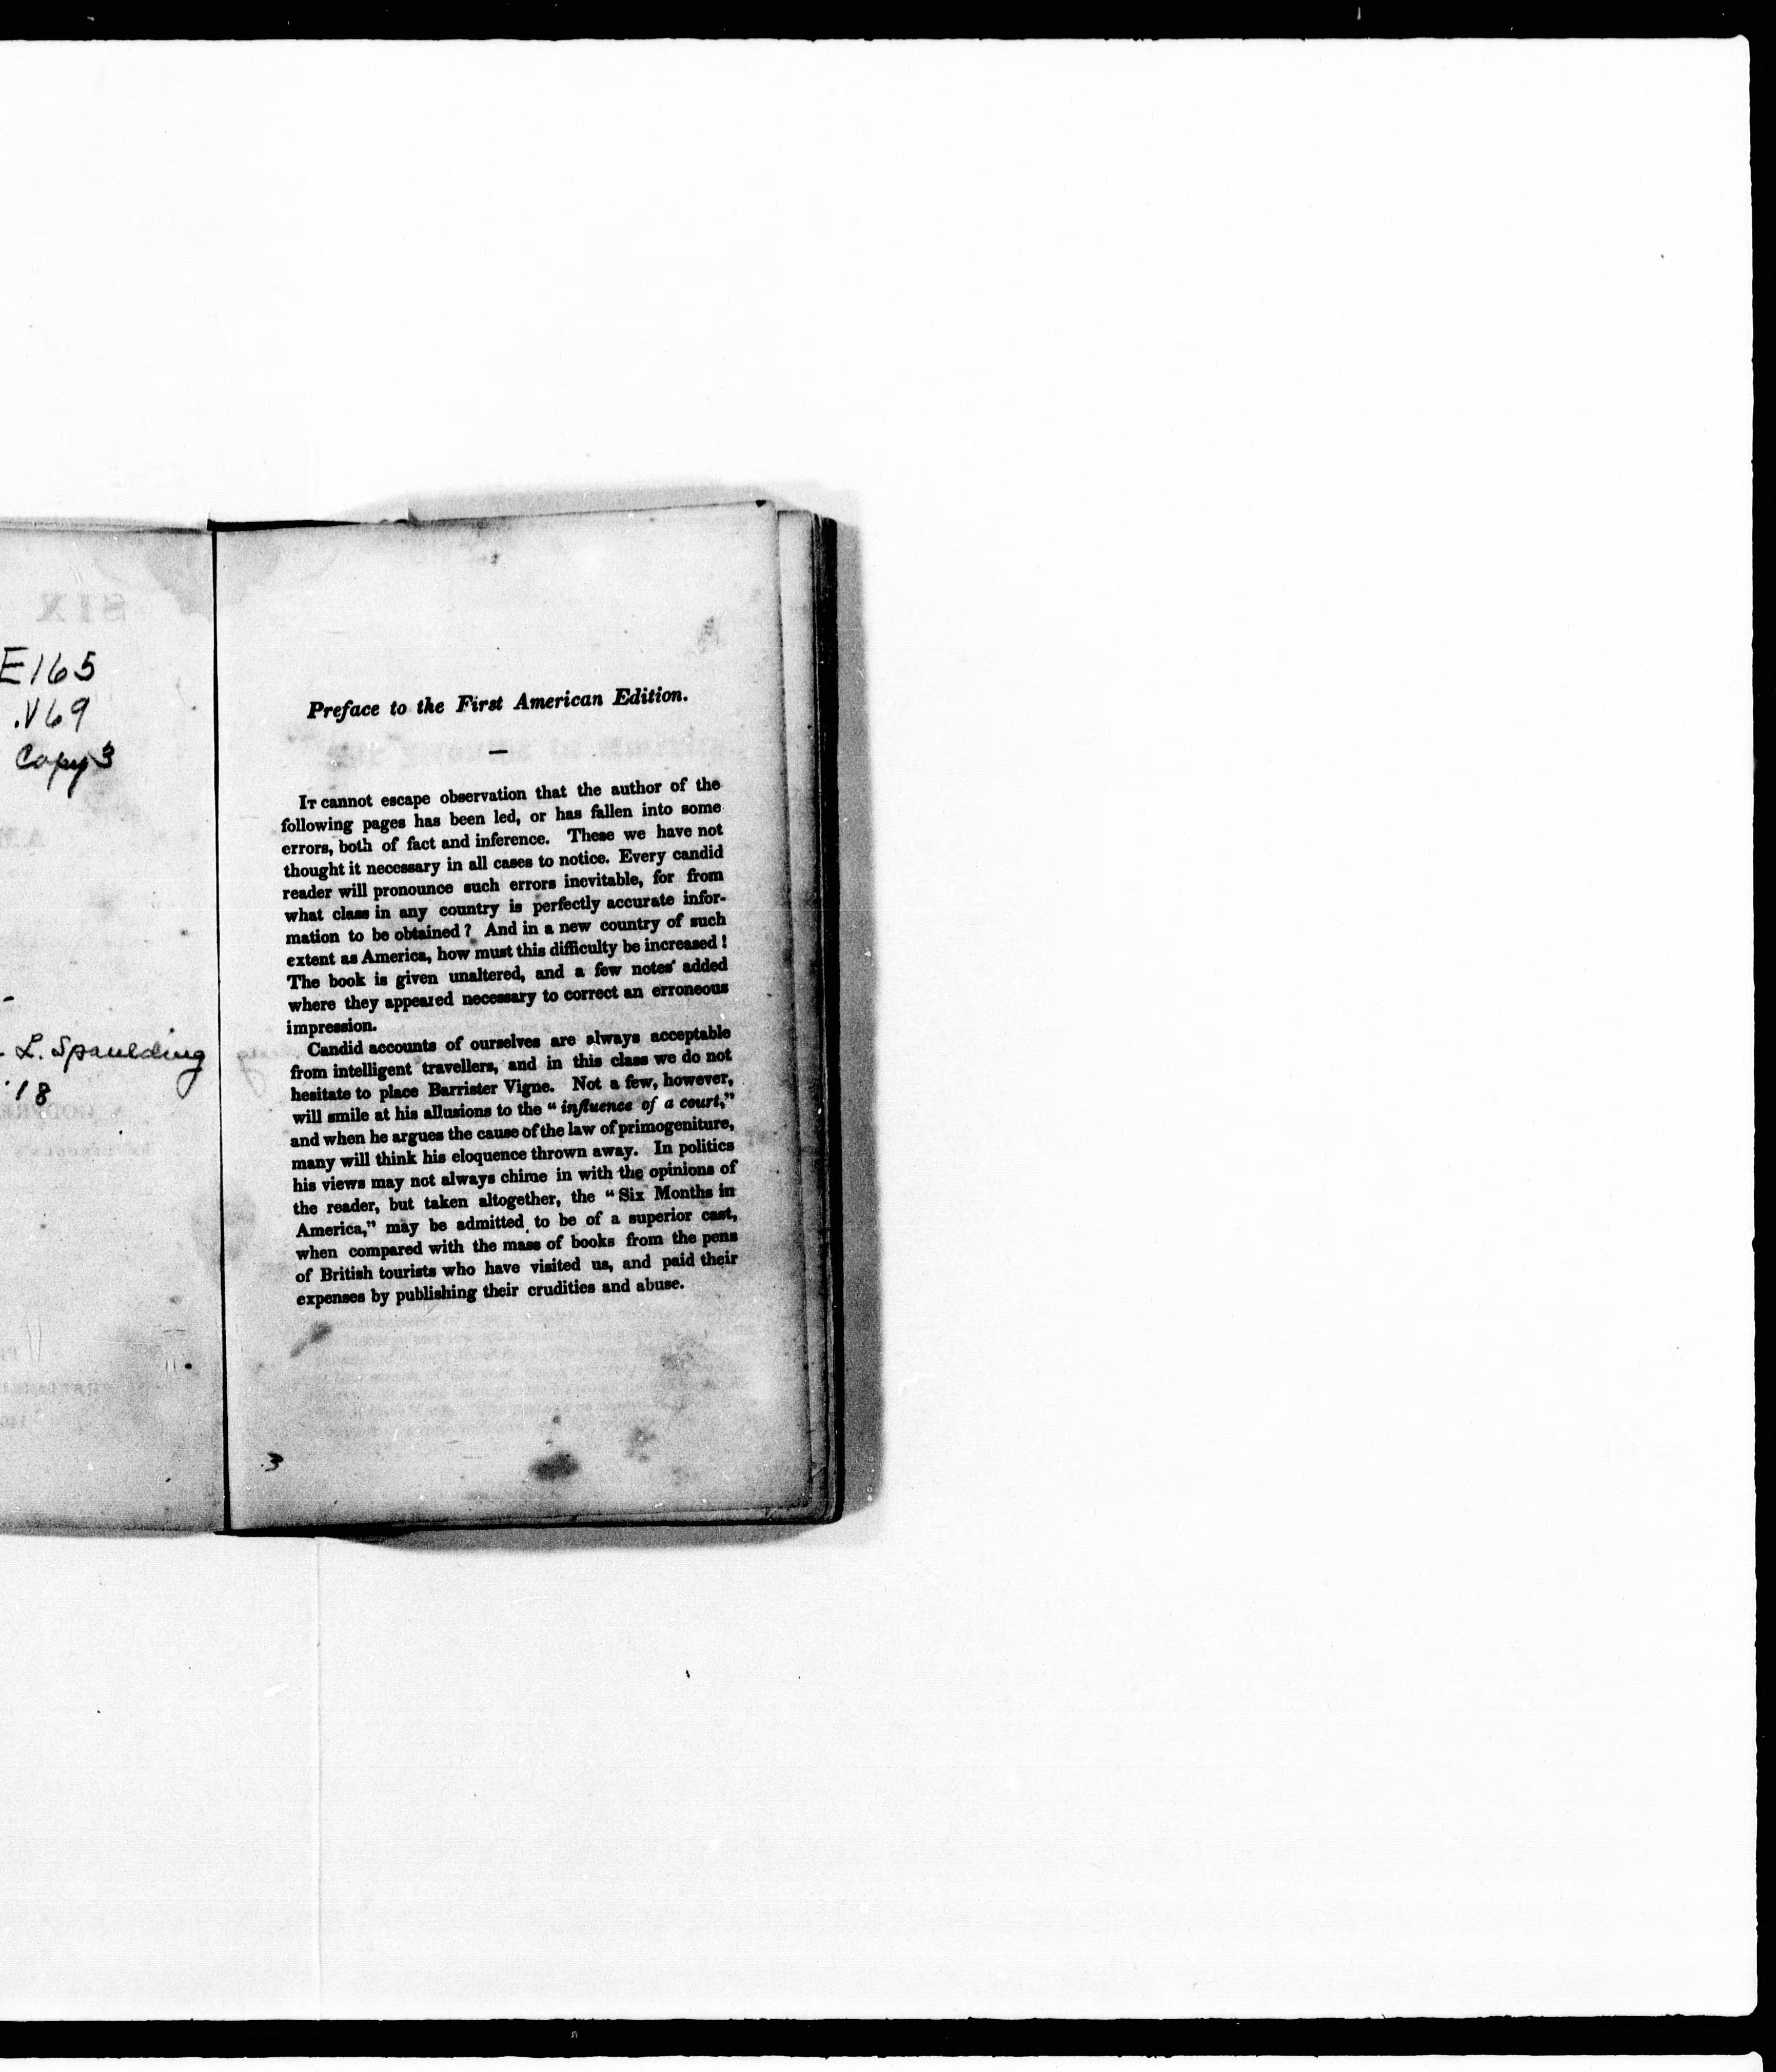 E165
.V69
Copy 3
L. Spaulding
'18
Preface to the First American Edition.
IT cannot escape observation that the author of the
following pages has been led, or has fallen into some
errors, both of fact and inference. These we have not
thought it necessary in all cases to notice. Every candid
reader will pronounce such errors inevitable, for from
what class in any country is perfectly accurate infor-
mation to be obtained? And in a new country of such
extent as America, how must this difficulty be increased!
The book is given unaltered, and a few notes added
where they appeared necessary to correct an erroneous
impression.
Candid accounts of ourselves are always acceptable
from intelligent travellers, and in this class we do not
hesitate to place Barrister Vigne. Not a few, however,
will smile at his allusions to the "influence of a court,"
and when he argues the cause of the law of primogeniture,
many will think his eloquence thrown away. In politics
his views may not always chime in with the opinions of
the reader, but taken altogether, the "Six Months in
America," may be admitted to be of a superior cast,
when compared with the mass of books from the pens
of British tourists who have visited us, and paid their
expenses by publishing their crudities and abuse.
3